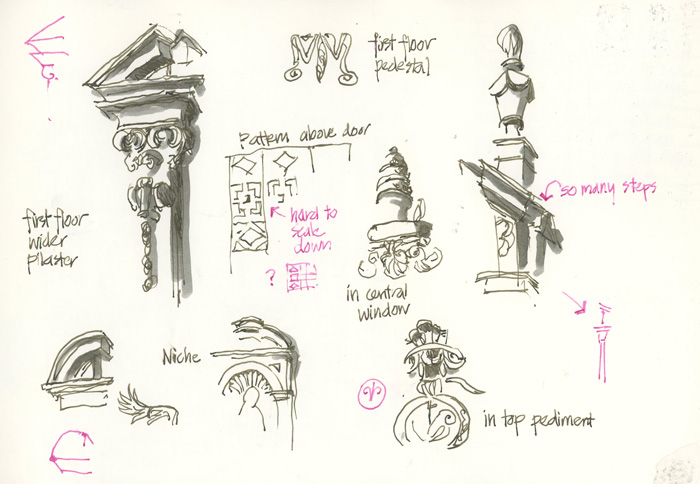 first floor
pedestal
Pattern above door
so many steps
first floor
wider
pilaster
hard to
scale
down
?
in central
window
Niche
in top pediment